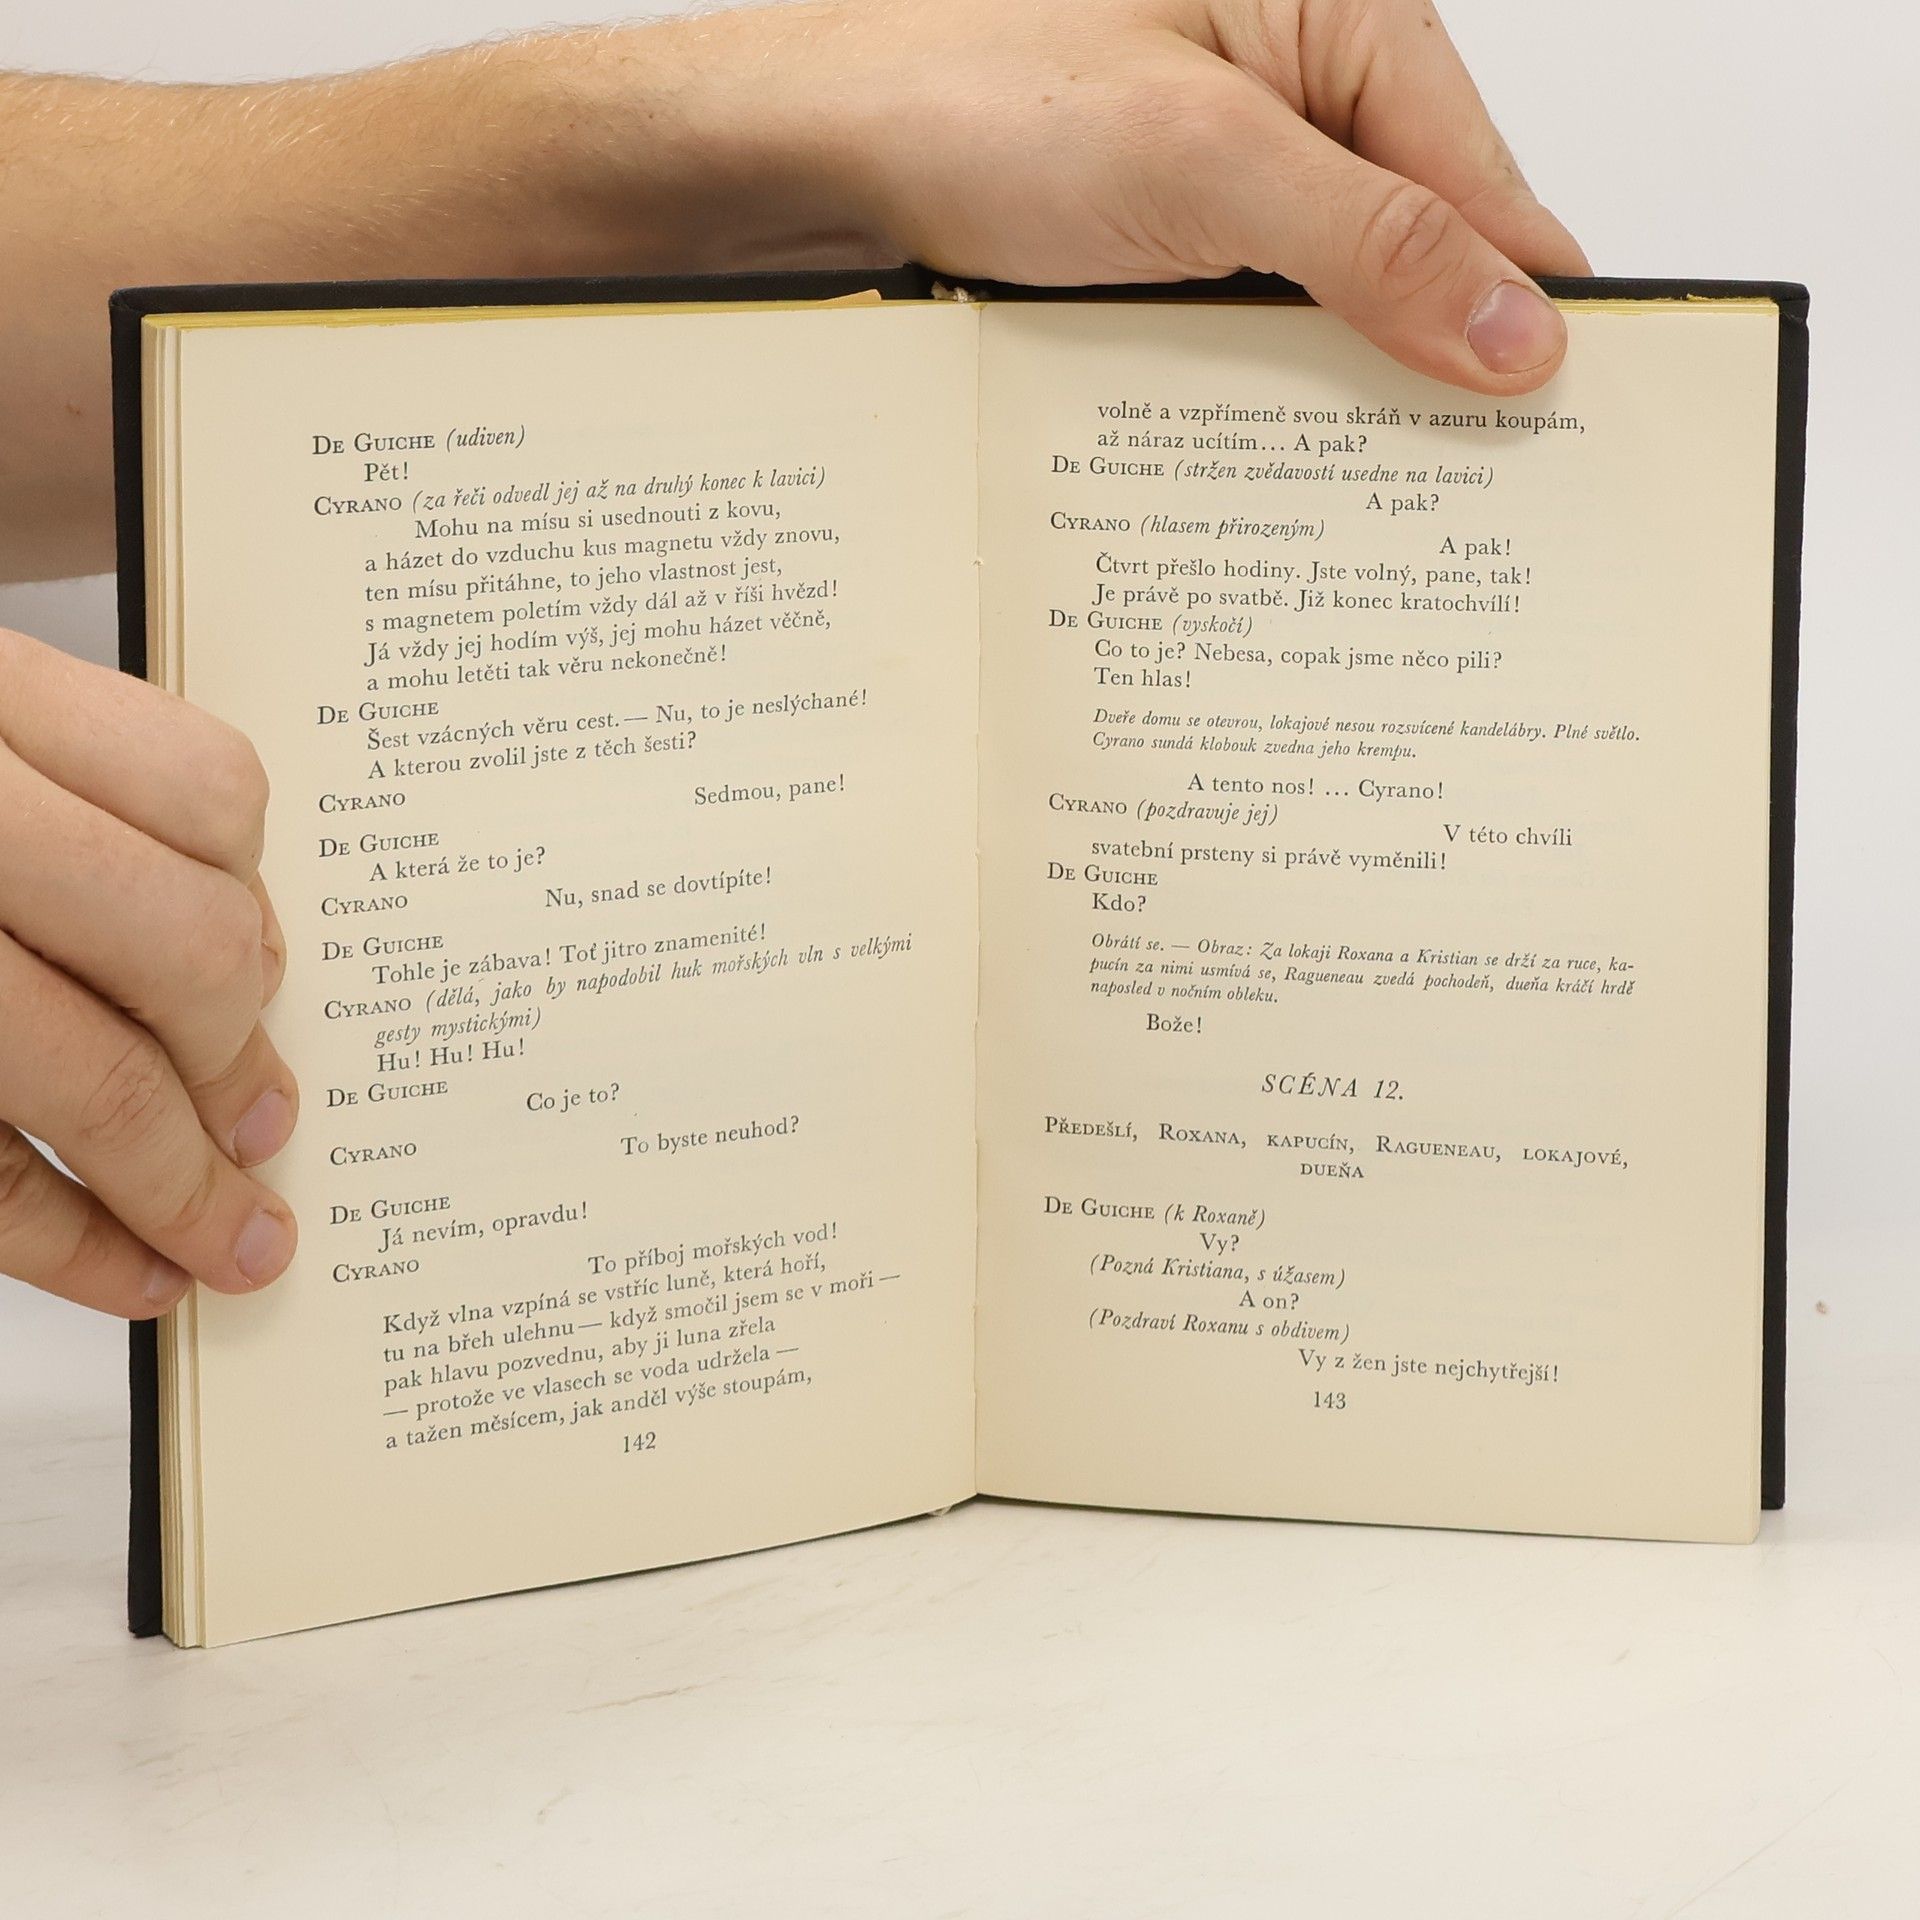 De Guiche (udiven)
Pět!
Cyrano (za řeči odvedl jej až na druhý konec k lavici)
Mohu na mísu si usednouti z kovu,
a házet do vzduchu kus magnetu vždy znovu,
ten mísu přitáhne, to jeho vlastnost jest,
s magnetem poletím vždy dál až v říši hvězd!
Já vždy jej hodím výš, jej mohu házet věčně,
a mohu letěti tak věru nekonečně!
De Guiche
Šest vzácných věru cest. — Nu, to je neslýchané!
A kterou zvolil jste z těch šesti?
Cyrano Sedmou, pane!
De Guiche
A která že to je?
Cyrano Nu, snad se dovtípíte!
De Guiche
Tohle je zábava! Toť jitro znamenité!
Cyrano (dělá, jako by napodobil huk mořských vln s velkými
gesty mystickými)
Hu! Hu! Hu!
De Guiche Co je to?
Cyrano To byste neuhod?
De Guiche
Já nevím, opravdu!
Cyrano To příboj mořských vod!
Když vlna vzpíná se vstříc luně, která hoří,
tu na břeh ulehnu — když smočil jsem se v moři —
pak hlavu pozvednu, aby ji luna zřela
— protože ve vlasech se voda udržela —
a tažen měsícem, jak anděl výše stoupám,
142
volně a vzpřímeně svou skráň v azuru koupám,
až náraz ucítím... A pak?
De Guiche (stržen zvědavostí usedne na lavici)
A pak?
Cyrano (hlasem přirozeným)
A pak!
Čtvrt přešlo hodiny. Jste volný, pane, tak!
Je právě po svatbě. Již konec kratochvílí!
De Guiche (vyskočí)
Co to je? Nebesa, copak jsme něco pili?
Ten hlas!
Dveře domu se otevrou, lokajové nesou rozsvícené kandelábry. Plné světlo.
Cyrano sundá klobouk zvedna jeho krempu.
A tento nos! ... Cyrano!
Cyrano (pozdravuje jej)
V této chvíli
svatební prsteny si právě vyměnili!
De Guiche
Kdo?
Obrátí se. — Obraz: Za lokaji Roxana a Kristian se drží za ruce, ka-
pucín za nimi usmívá se, Ragueneau zvedá pochodeň, dueňa kráčí hrdě
naposled v nočním obleku.
Bože!
SCÉNA 12.
Předešlí, Roxana, kapucín, Ragueneau, lokajové,
dueňa
De Guiche (k Roxaně)
Vy?
(Pozná Kristiana, s úžasem)
A on?
(Pozdraví Roxanu s obdivem)
Vy z žen jste nejchytřejší!
143